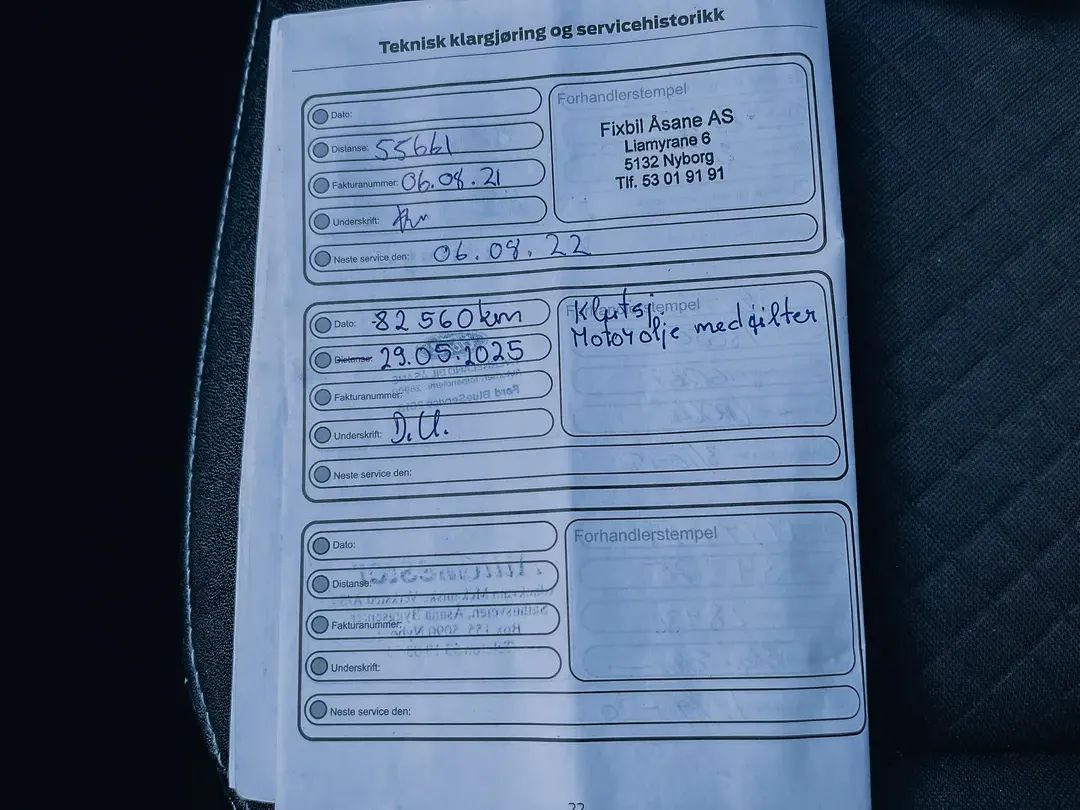 Teknisk klargjøring og servicehistorikk
Dato:
Distanse: 55661
Fakturanummer: 06.08.21
Underskrift:
Neste service den: 06.08.22
Forhandlerstempel
Fixbil Åsane AS
Liamyrane 6
5132 Nyborg
Tlf. 53 01 91 91
Dato: 82 560km
Distanse: 29.05.2025
Fakturanummer:
Underskrift: D.U.
Neste service den:
Forhandlerstempel
Motorolje med filter
Dato:
Distanse:
Fakturanummer:
Underskrift:
Neste service den:
Forhandlerstempel